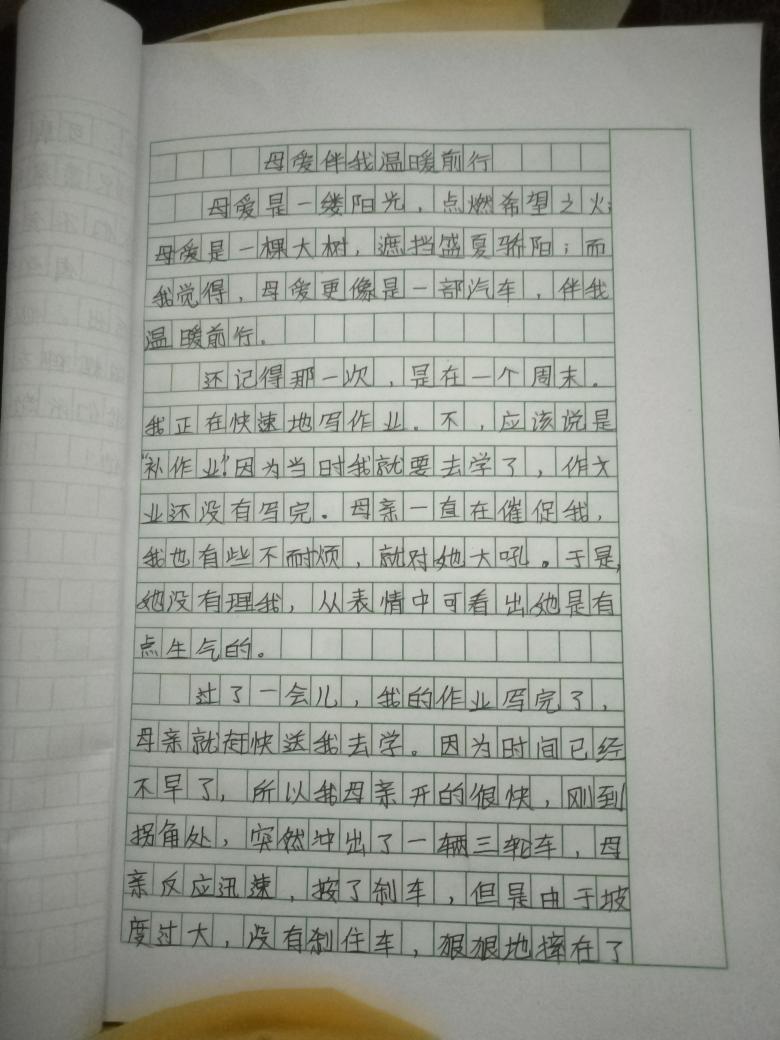 母爱伴我温暖前行
母爱是一缕阳光，点燃希望之火；
母爱是一棵大树，遮挡盛夏骄阳；而
我觉得，母爱更像是一部汽车，伴我
温暖前行。
还记得那一次，是在一个周末。
我正在快速地写作业。不，应该说是
“补作业”因为当时我就要去学了，作文
业还没有写完。母亲一直在催促我，
我也有些不耐烦，就对她大吼。于是，
她没有理我，从表情中可看出她是有
点生气的。
过了一会儿，我的作业写完了，
母亲就赶快送我去学。因为时间已经
不早了，所以我母亲开的很快，刚到
拐角处，突然冲出了一辆三轮车，母
亲反应迅速，按了刹车，但是由于坡
度过大，没有刹住车，狠狠地摔在了